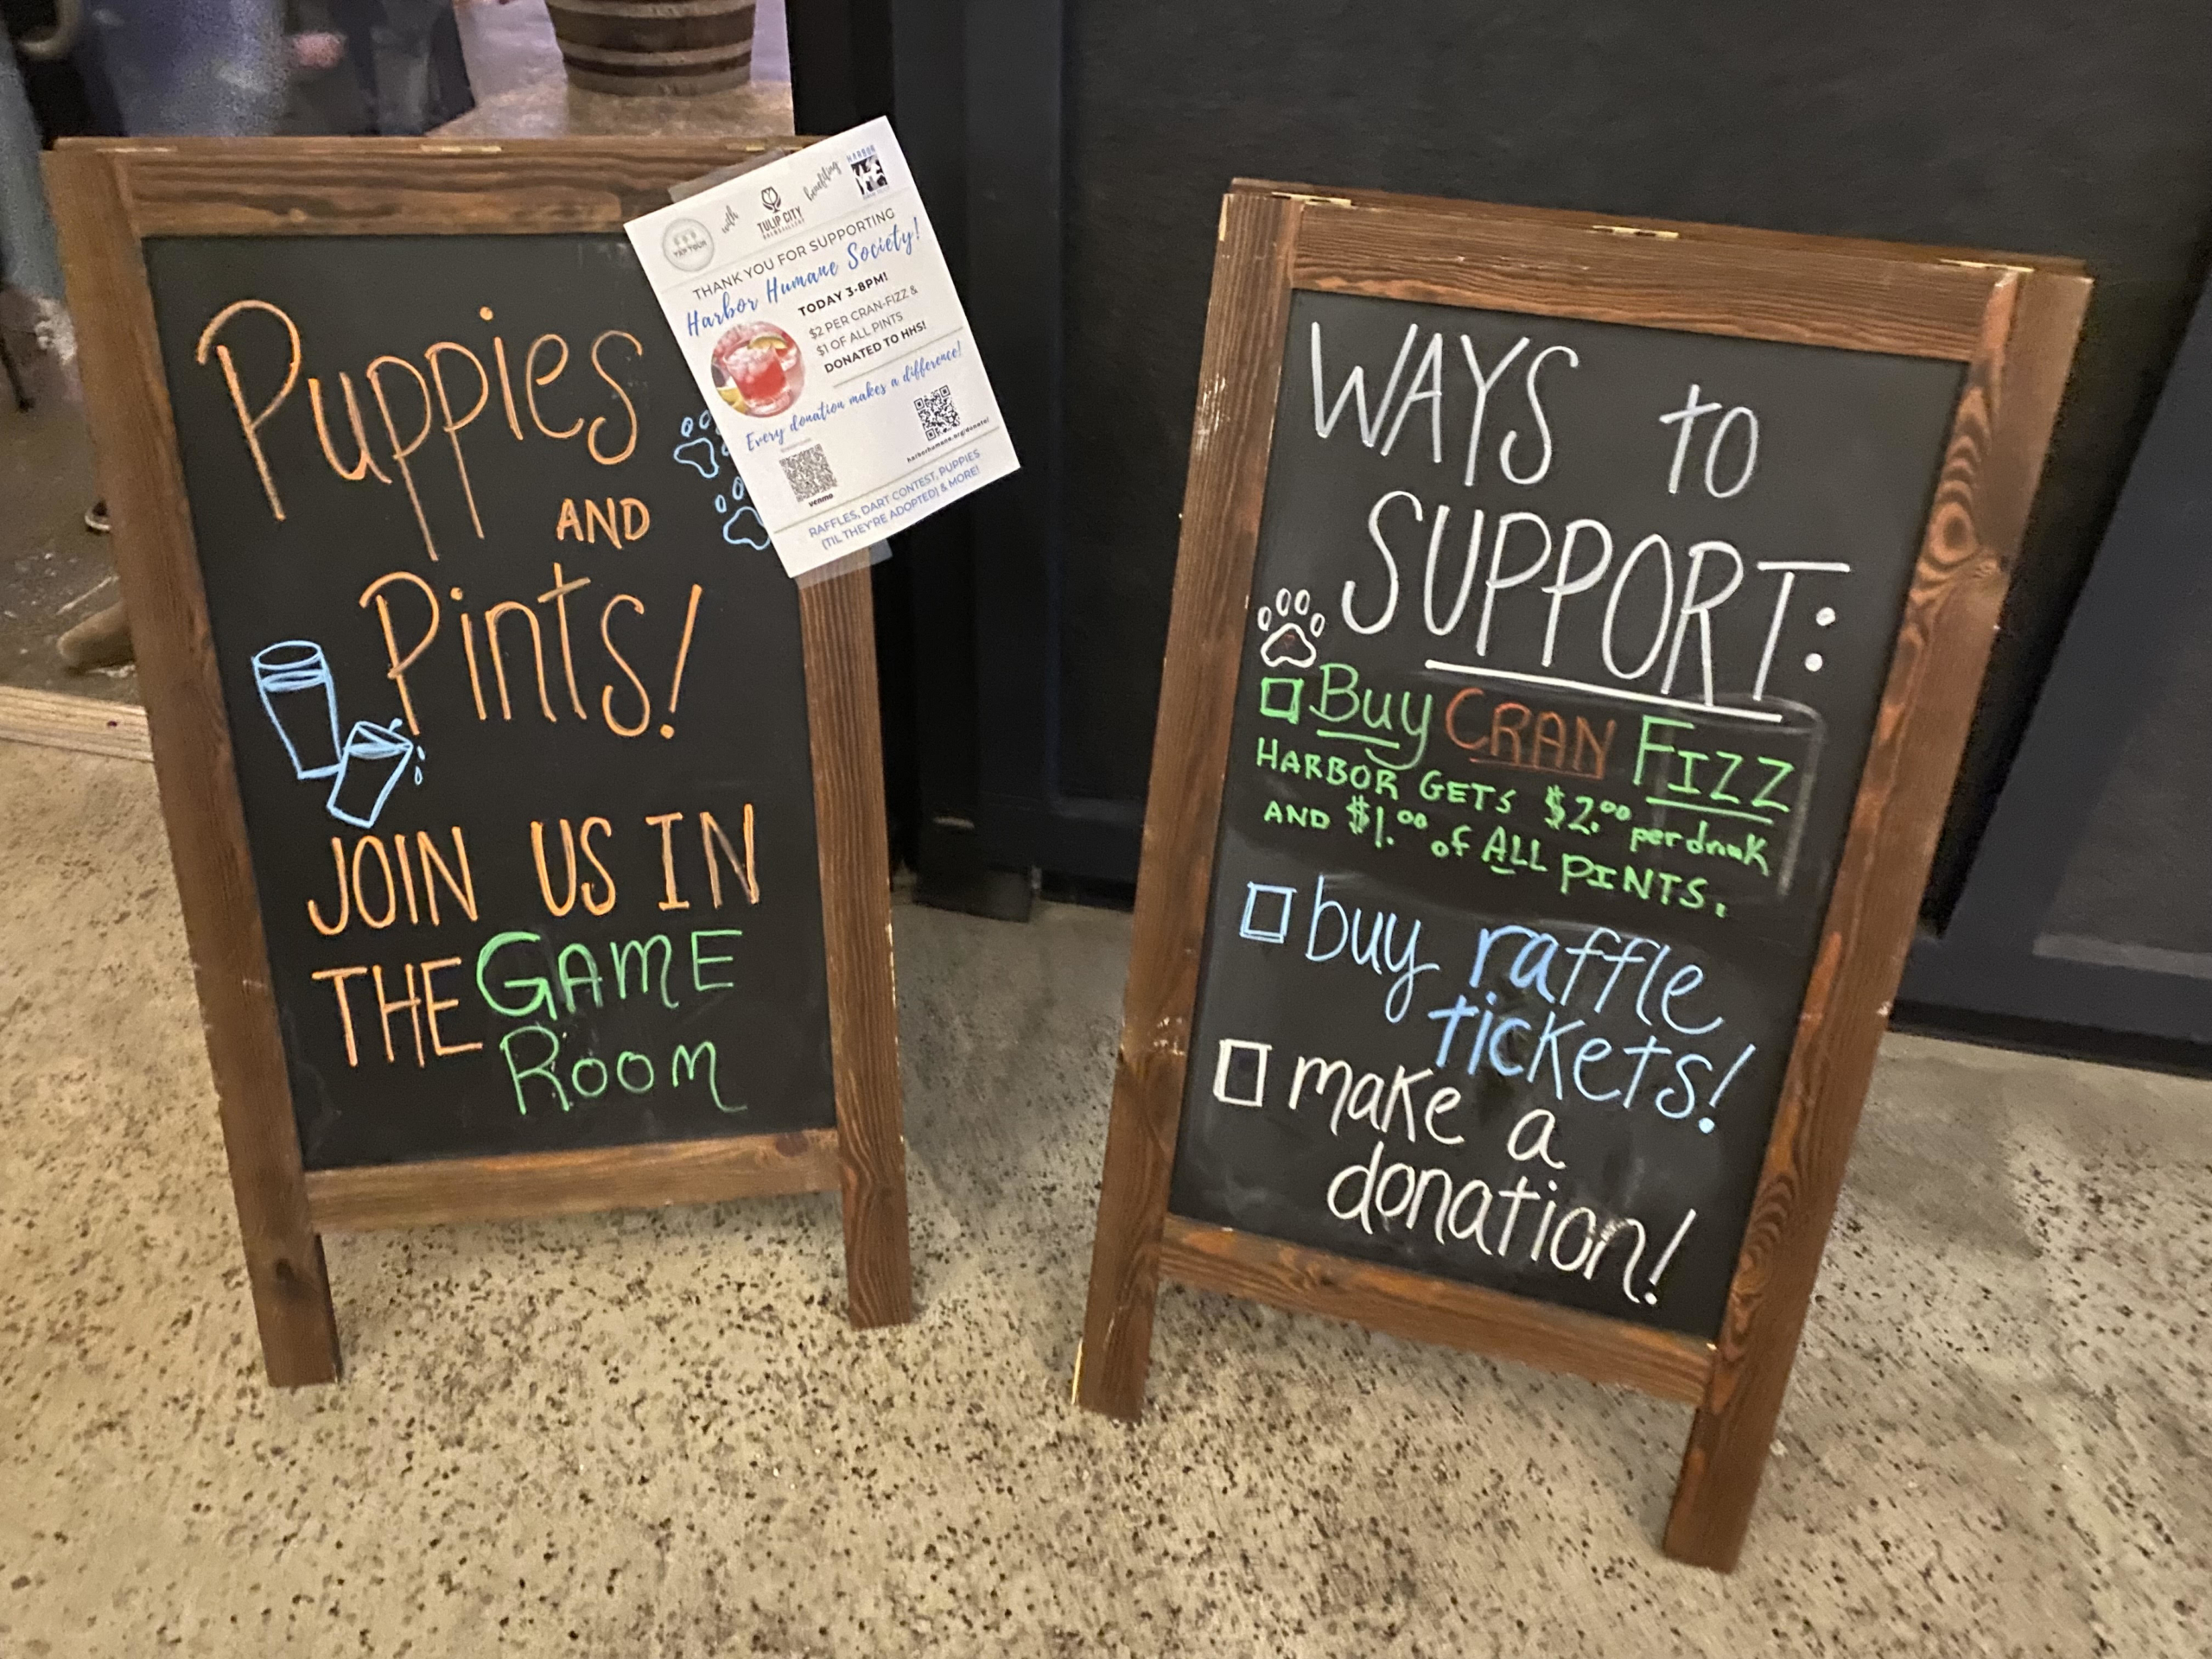 Puppies
AND
Pints!
JOIN US IN
THE GAME
ROOM
TAP TOUR
with
TULIP CITY
benefiting
HARBOR
THANK YOU FOR SUPPORTING
Harbor Humane Society!
TODAY 3-8PM!
$2 PER CRAN-FIZZ &
$1 OF ALL PINTS
DONATED TO HHS!
Every donation makes a difference!
venmo
harborhumane.org/donate/
RAFFLES, DART CONTEST, PUPPIES
(TIL THEY'RE ADOPTED) & MORE!
WAYS to
SUPPORT:
Buy CRAN FIZZ
HARBOR GETS $2.00 per drink
AND $1.00 of ALL PINTS.
buy raffle
tickets!
make a
donation!